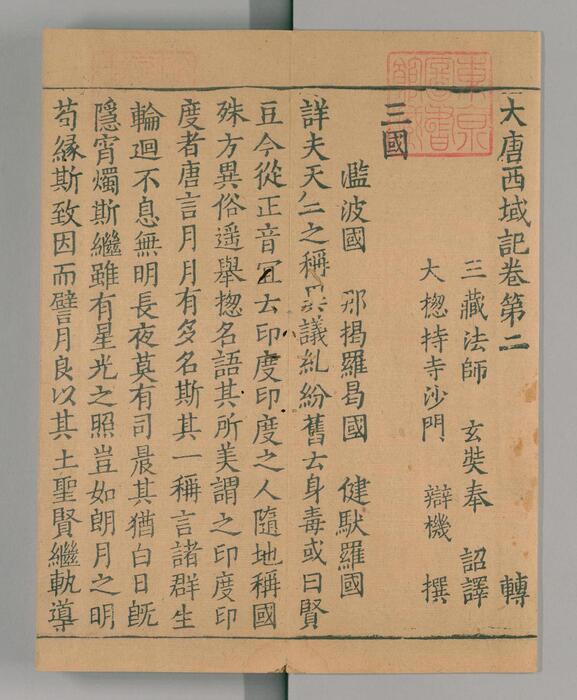 大唐西域記卷第二 轉
三藏法師 玄奘奉 詔譯
大揔持寺沙門 辯機 撰
三國
濫波國 那揭羅曷國 健馱羅國
詳夫天竺之稱異議糺紛舊云身毒或曰賢
豆今從正音宜云印度印度之人隨地稱國
殊方異俗遥舉揔名語其所美謂之印度印
度者唐言月月有多名斯其一稱言諸群生
輪迴不息無明長夜莫有司晨其猶白日旣
隱宵燭斯繼雖有星光之照豈如朗月之明
苟緣斯致因而譬月良以其土聖賢繼軌導